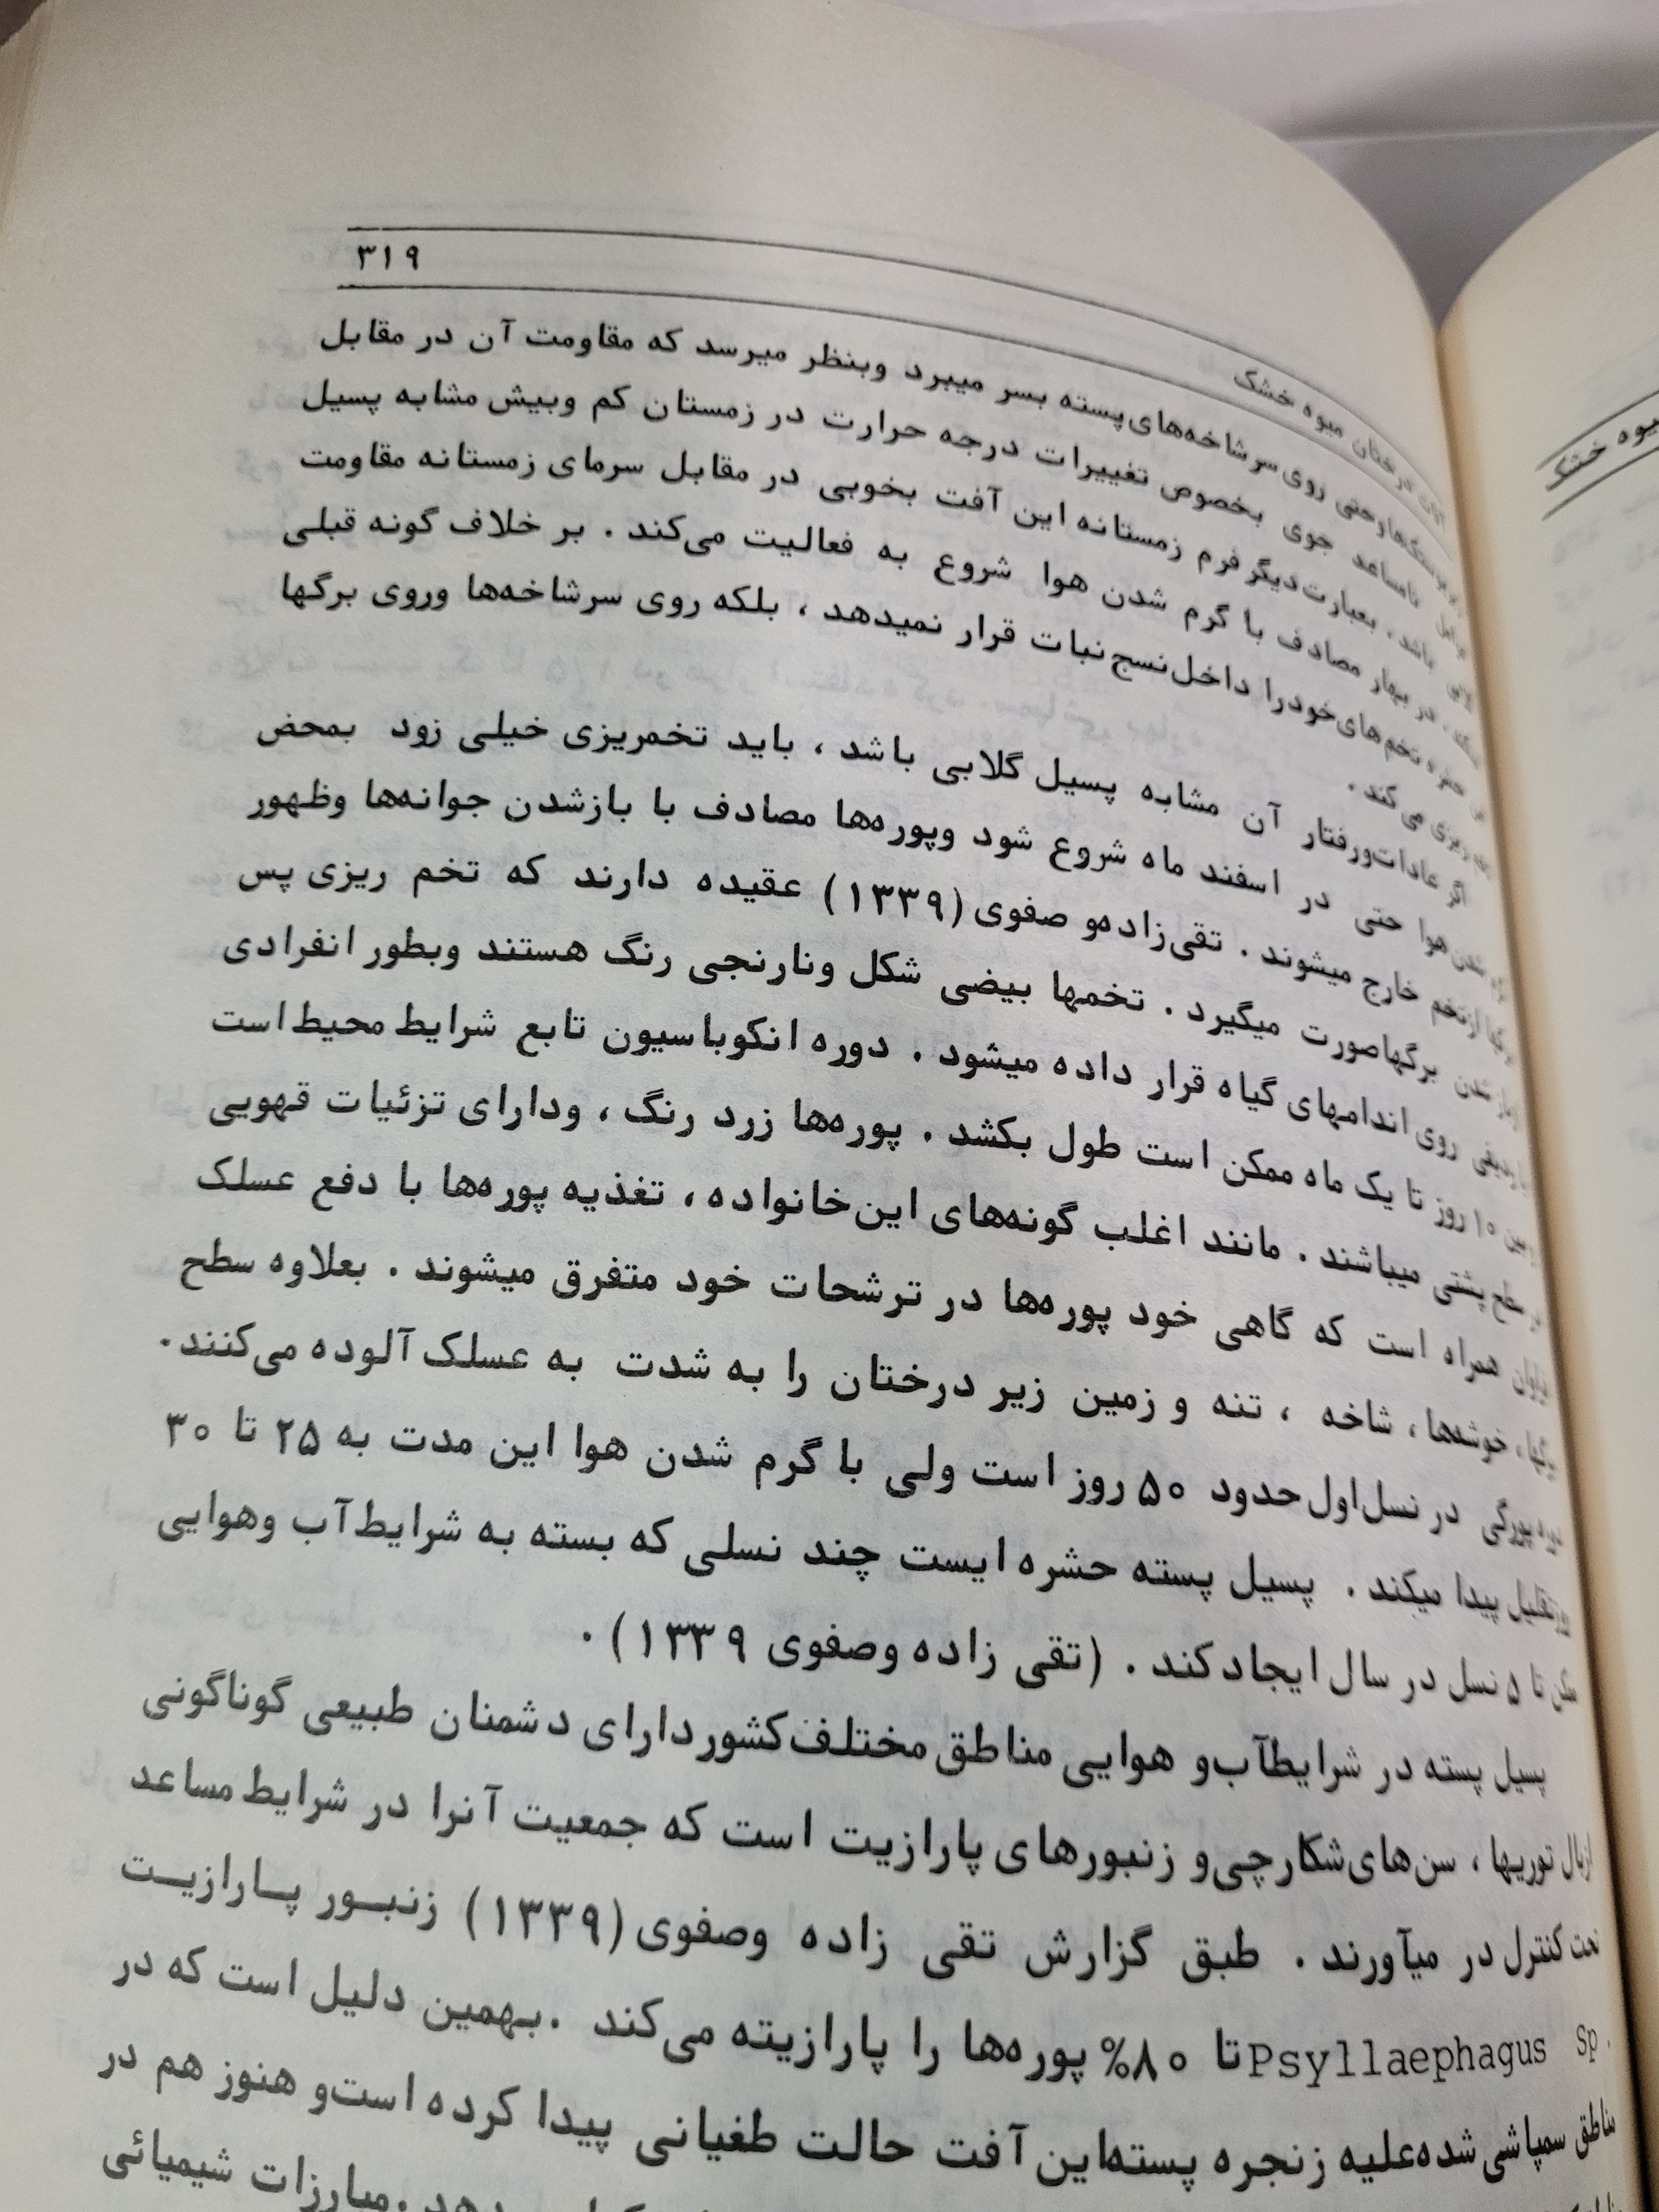 ۳۱۹
آفات درختان میوه خشک
وحتی روی سرشاخه‌های پسته بسر میبرد وبنظر میرسد که مقاومت آن در مقابل
نامساعد جوی بخصوص تغییرات درجه حرارت در زمستان کم وبیش مشابه پسیل
باشد، بعبارت دیگر فرم زمستانه این آفت بخوبی در مقابل سرمای زمستانه مقاومت
در بهار مصادف با گرم شدن هوا شروع به فعالیت می‌کند . بر خلاف گونه قبلی
تخم‌های خود را داخل نسج نبات قرار نمیدهد ، بلکه روی سرشاخه‌ها وروی برگها
ریزی می کند .
اگر عادات ورفتار آن مشابه پسیل گلابی باشد ، باید تخمریزی خیلی زود بمحض
شدن هوا حتی در اسفند ماه شروع شود وپوره‌ها مصادف با بازشدن جوانه‌ها وظهور
برگها از تخم خارج میشوند . تقی‌زاده‌و صفوی (۱۳۳۹) عقیده دارند که تخم ریزی پس
شدن برگها صورت میگیرد . تخمها بیضی شکل ونارنجی رنگ هستند وبطور انفرادی
روی اندامهای گیاه قرار داده میشود . دوره انکوباسیون تابع شرایط محیط است
بین ۱۰ روز تا یک ماه ممکن است طول بکشد . پوره‌ها زرد رنگ ، ودارای تزئیات قهویی
سطح پشتی میباشند . مانند اغلب گونه‌های این خانواده ، تغذیه پوره‌ها با دفع عسلک
فراوان همراه است که گاهی خود پوره‌ها در ترشحات خود متفرق میشوند . بعلاوه سطح
برگها ، خوشه‌ها ، شاخه ، تنه و زمین زیر درختان را به شدت به عسلک آلوده می‌کنند .
دوره پورگی در نسل اول حدود ۵۰ روز است ولی با گرم شدن هوا این مدت به ۲۵ تا ۳۰
روز تقلیل پیدا میکند . پسیل پسته حشره ایست چند نسلی که بسته به شرایط آب وهوایی
ممکن تا ۵ نسل در سال ایجاد کند . (تقی زاده وصفوی ۱۳۳۹) .
پسیل پسته در شرایطآب‌و هوایی مناطق مختلف کشور دارای دشمنان طبیعی گوناگونی
ازبال توریها ، سن‌های شکارچی‌و زنبورهای پارازیت است که جمعیت آنرا در شرایط مساعد
تحت کنترل در میآورند . طبق گزارش تقی زاده وصفوی (۱۳۳۹) زنبور پارازیت
Psyllaephagus Sp. تا ۸۰% پوره‌ها را پارازیته می‌کند . بهمین دلیل است که در
مناطق سمپاشی شده‌علیه زنجره پسته‌این آفت حالت طغیانی پیدا کرده است‌و هنوز هم در
دهد . مبارزات شیمیائی
میوه خشک